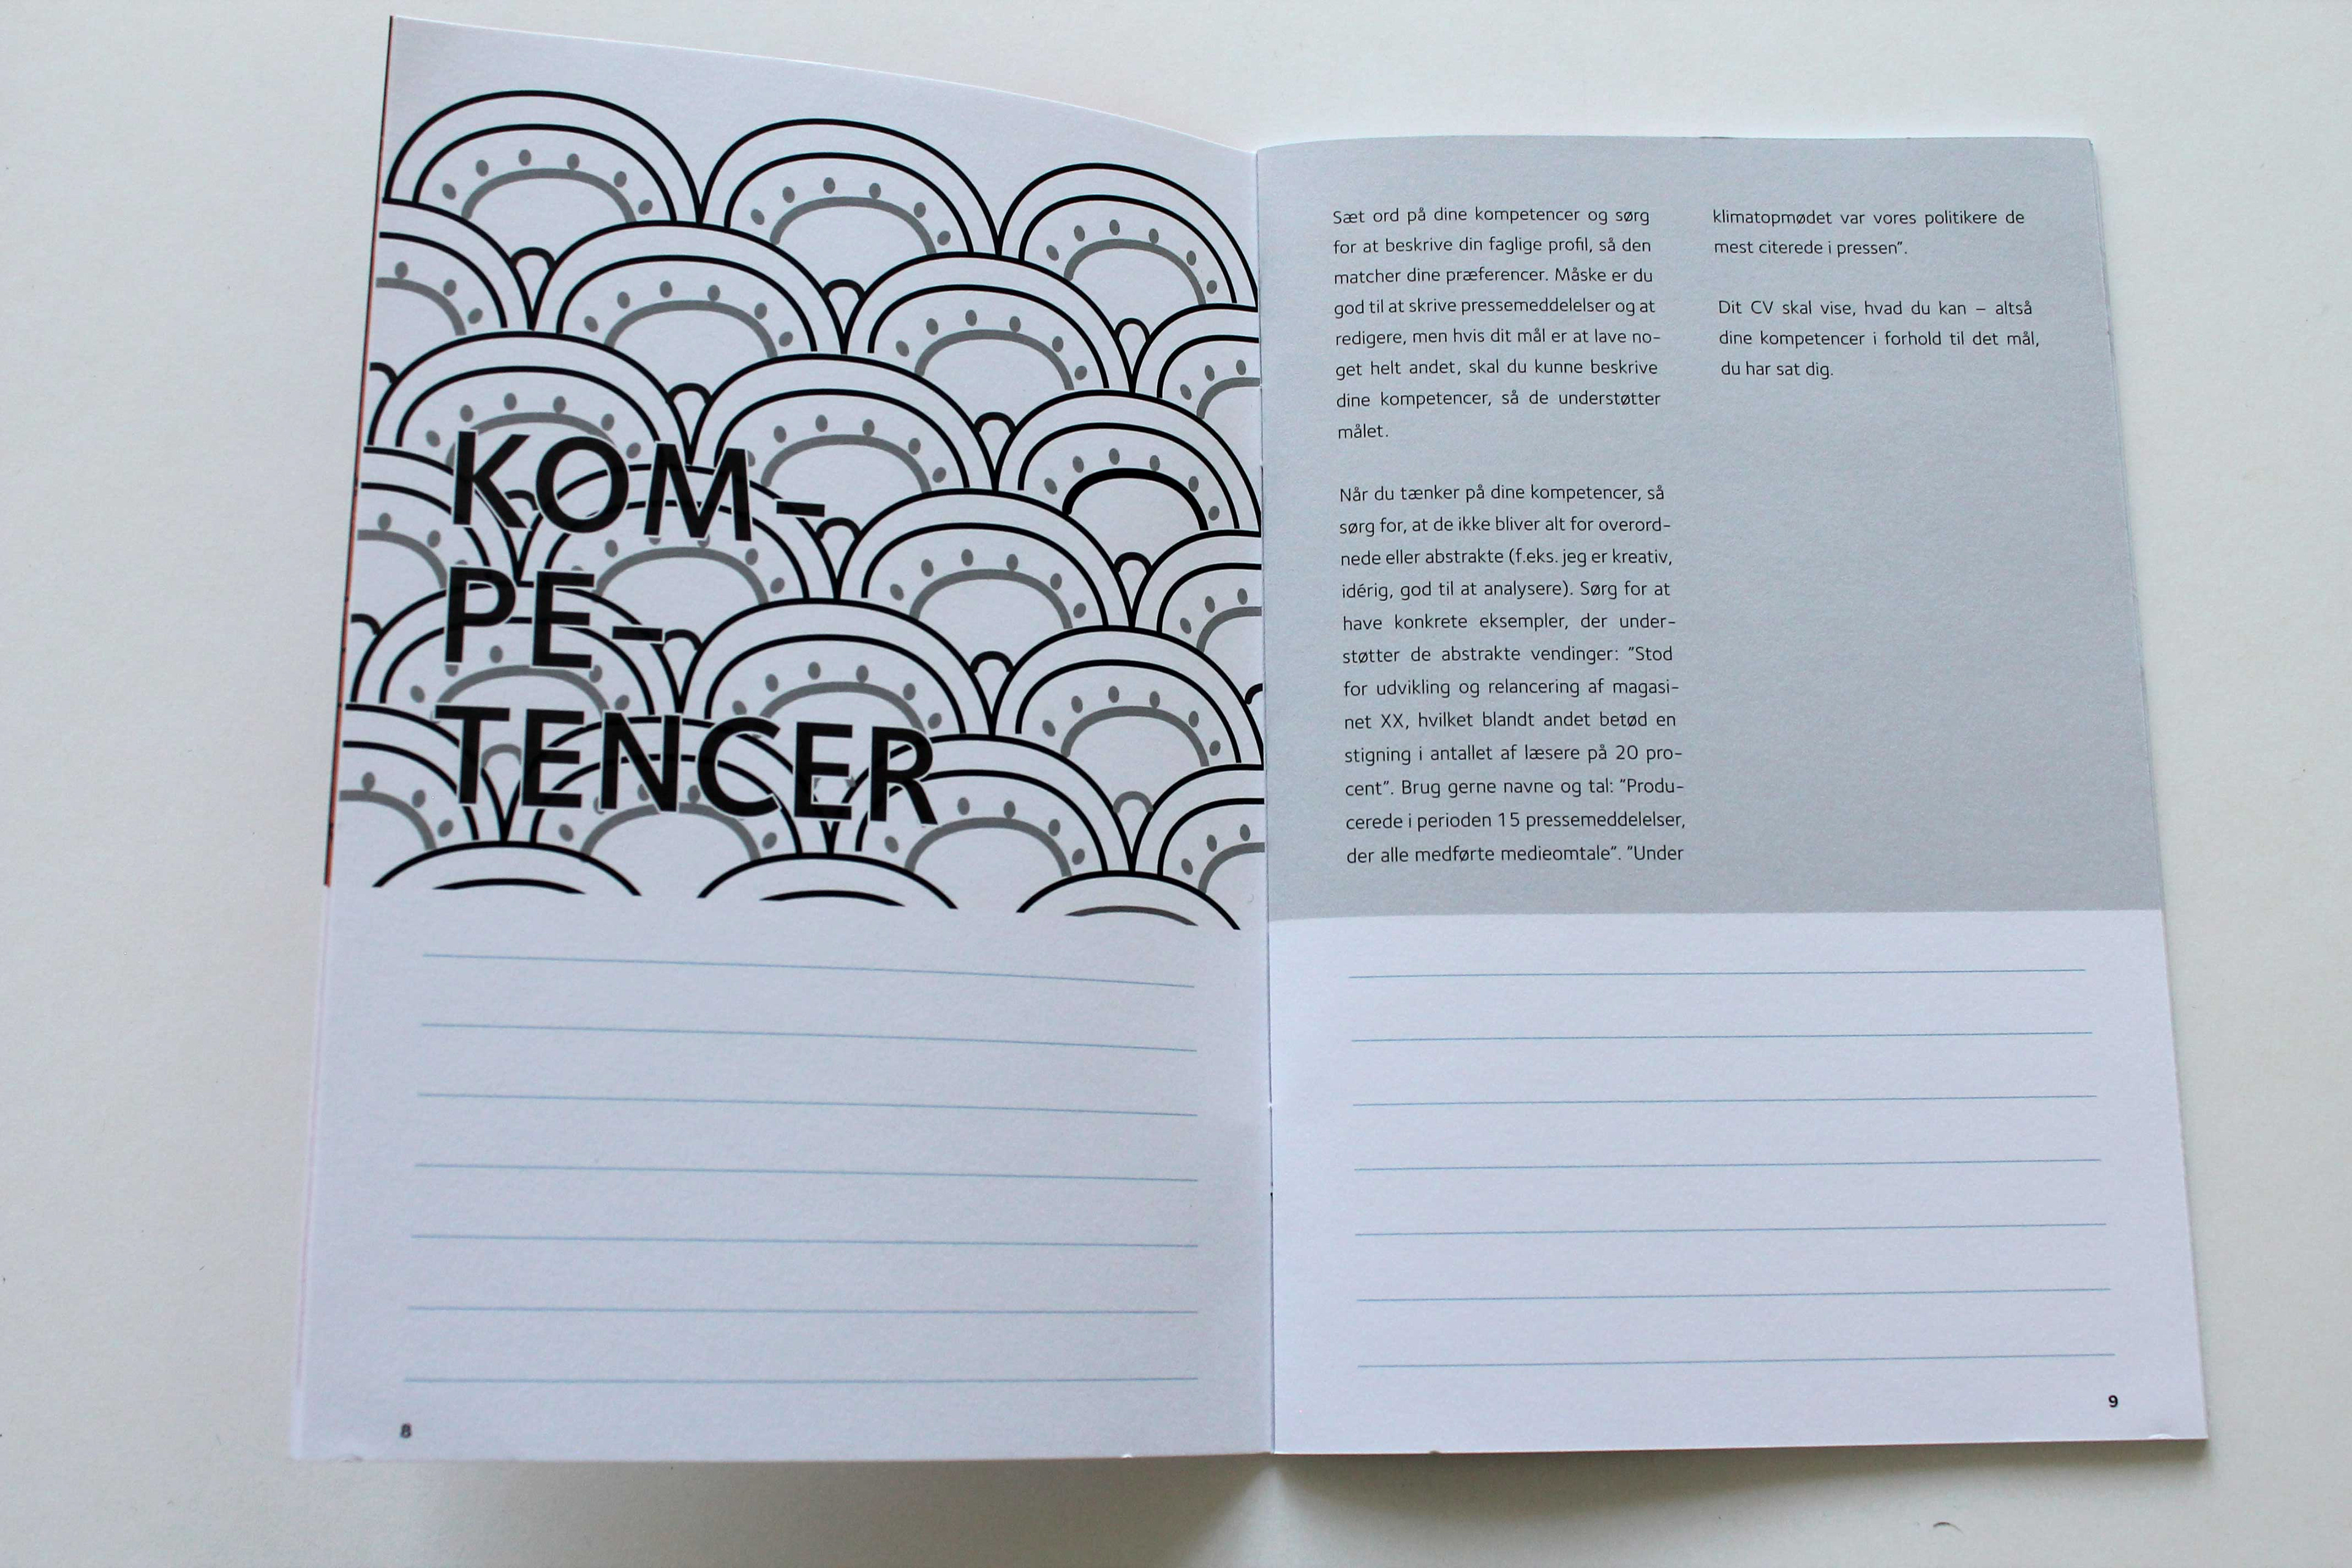 KOM-
PE-
TENCER
8
Sæt ord på dine kompetencer og sørg
for at beskrive din faglige profil, så den
matcher dine præferencer. Måske er du
god til at skrive pressemeddelelser og at
redigere, men hvis dit mål er at lave no-
get helt andet, skal du kunne beskrive
dine kompetencer, så de understøtter
målet.
Når du tænker på dine kompetencer, så
sørg for, at de ikke bliver alt for overord-
nede eller abstrakte (f.eks. jeg er kreativ,
idérig, god til at analysere). Sørg for at
have konkrete eksempler, der under-
støtter de abstrakte vendinger: ”Stod
for udvikling og relancering af magasi-
net XX, hvilket blandt andet betød en
stigning i antallet af læsere på 20 pro-
cent”. Brug gerne navne og tal: ”Produ-
cerede i perioden 15 pressemeddelelser,
der alle medførte medieomtale”. ”Under
klimatopmødet var vores politikere de
mest citerede i pressen”.
Dit CV skal vise, hvad du kan – altså
dine kompetencer i forhold til det mål,
du har sat dig.
9